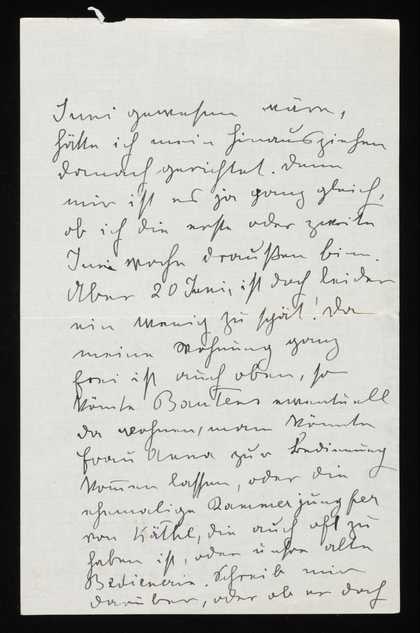 Juni gewesen wäre,
hätte ich mein Hinausziehen
danach gerichtet. Denn
mir ist es ja ganz gleich,
ob ich die erste oder zweite
Juni woche draußen bin.
Aber 20 Juni, ist doch leider
ein wenig zu spät! Da
meine Wohnung ganz
frei ist auch oben, so
könnte eventuell
da wohnen, man könnte
Frau Anna zur Bedienung
kommen lassen, oder die
ehemalige Kammerjungfer
von Käthl, die auch oft zu
haben ist, oder unsre alte
Bedienerin. Schreib mir
darüber, oder ob er doch